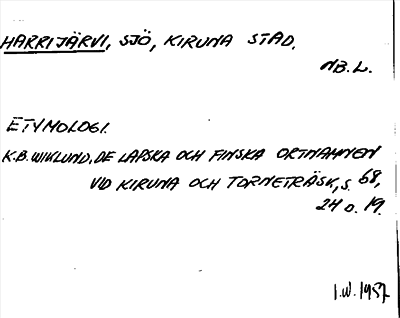 HARRIJÄRVI, SJÖ, KIRUNA STAD.
NB.L.
ETYMOLOGI.
K.B. WIKLUND, DE LAPSKA OCH FINSKA ORTNAMNEN
VID KIRUNA OCH TORNETRÄSK, S. 68,
24 O. 19.
I.W. 1957